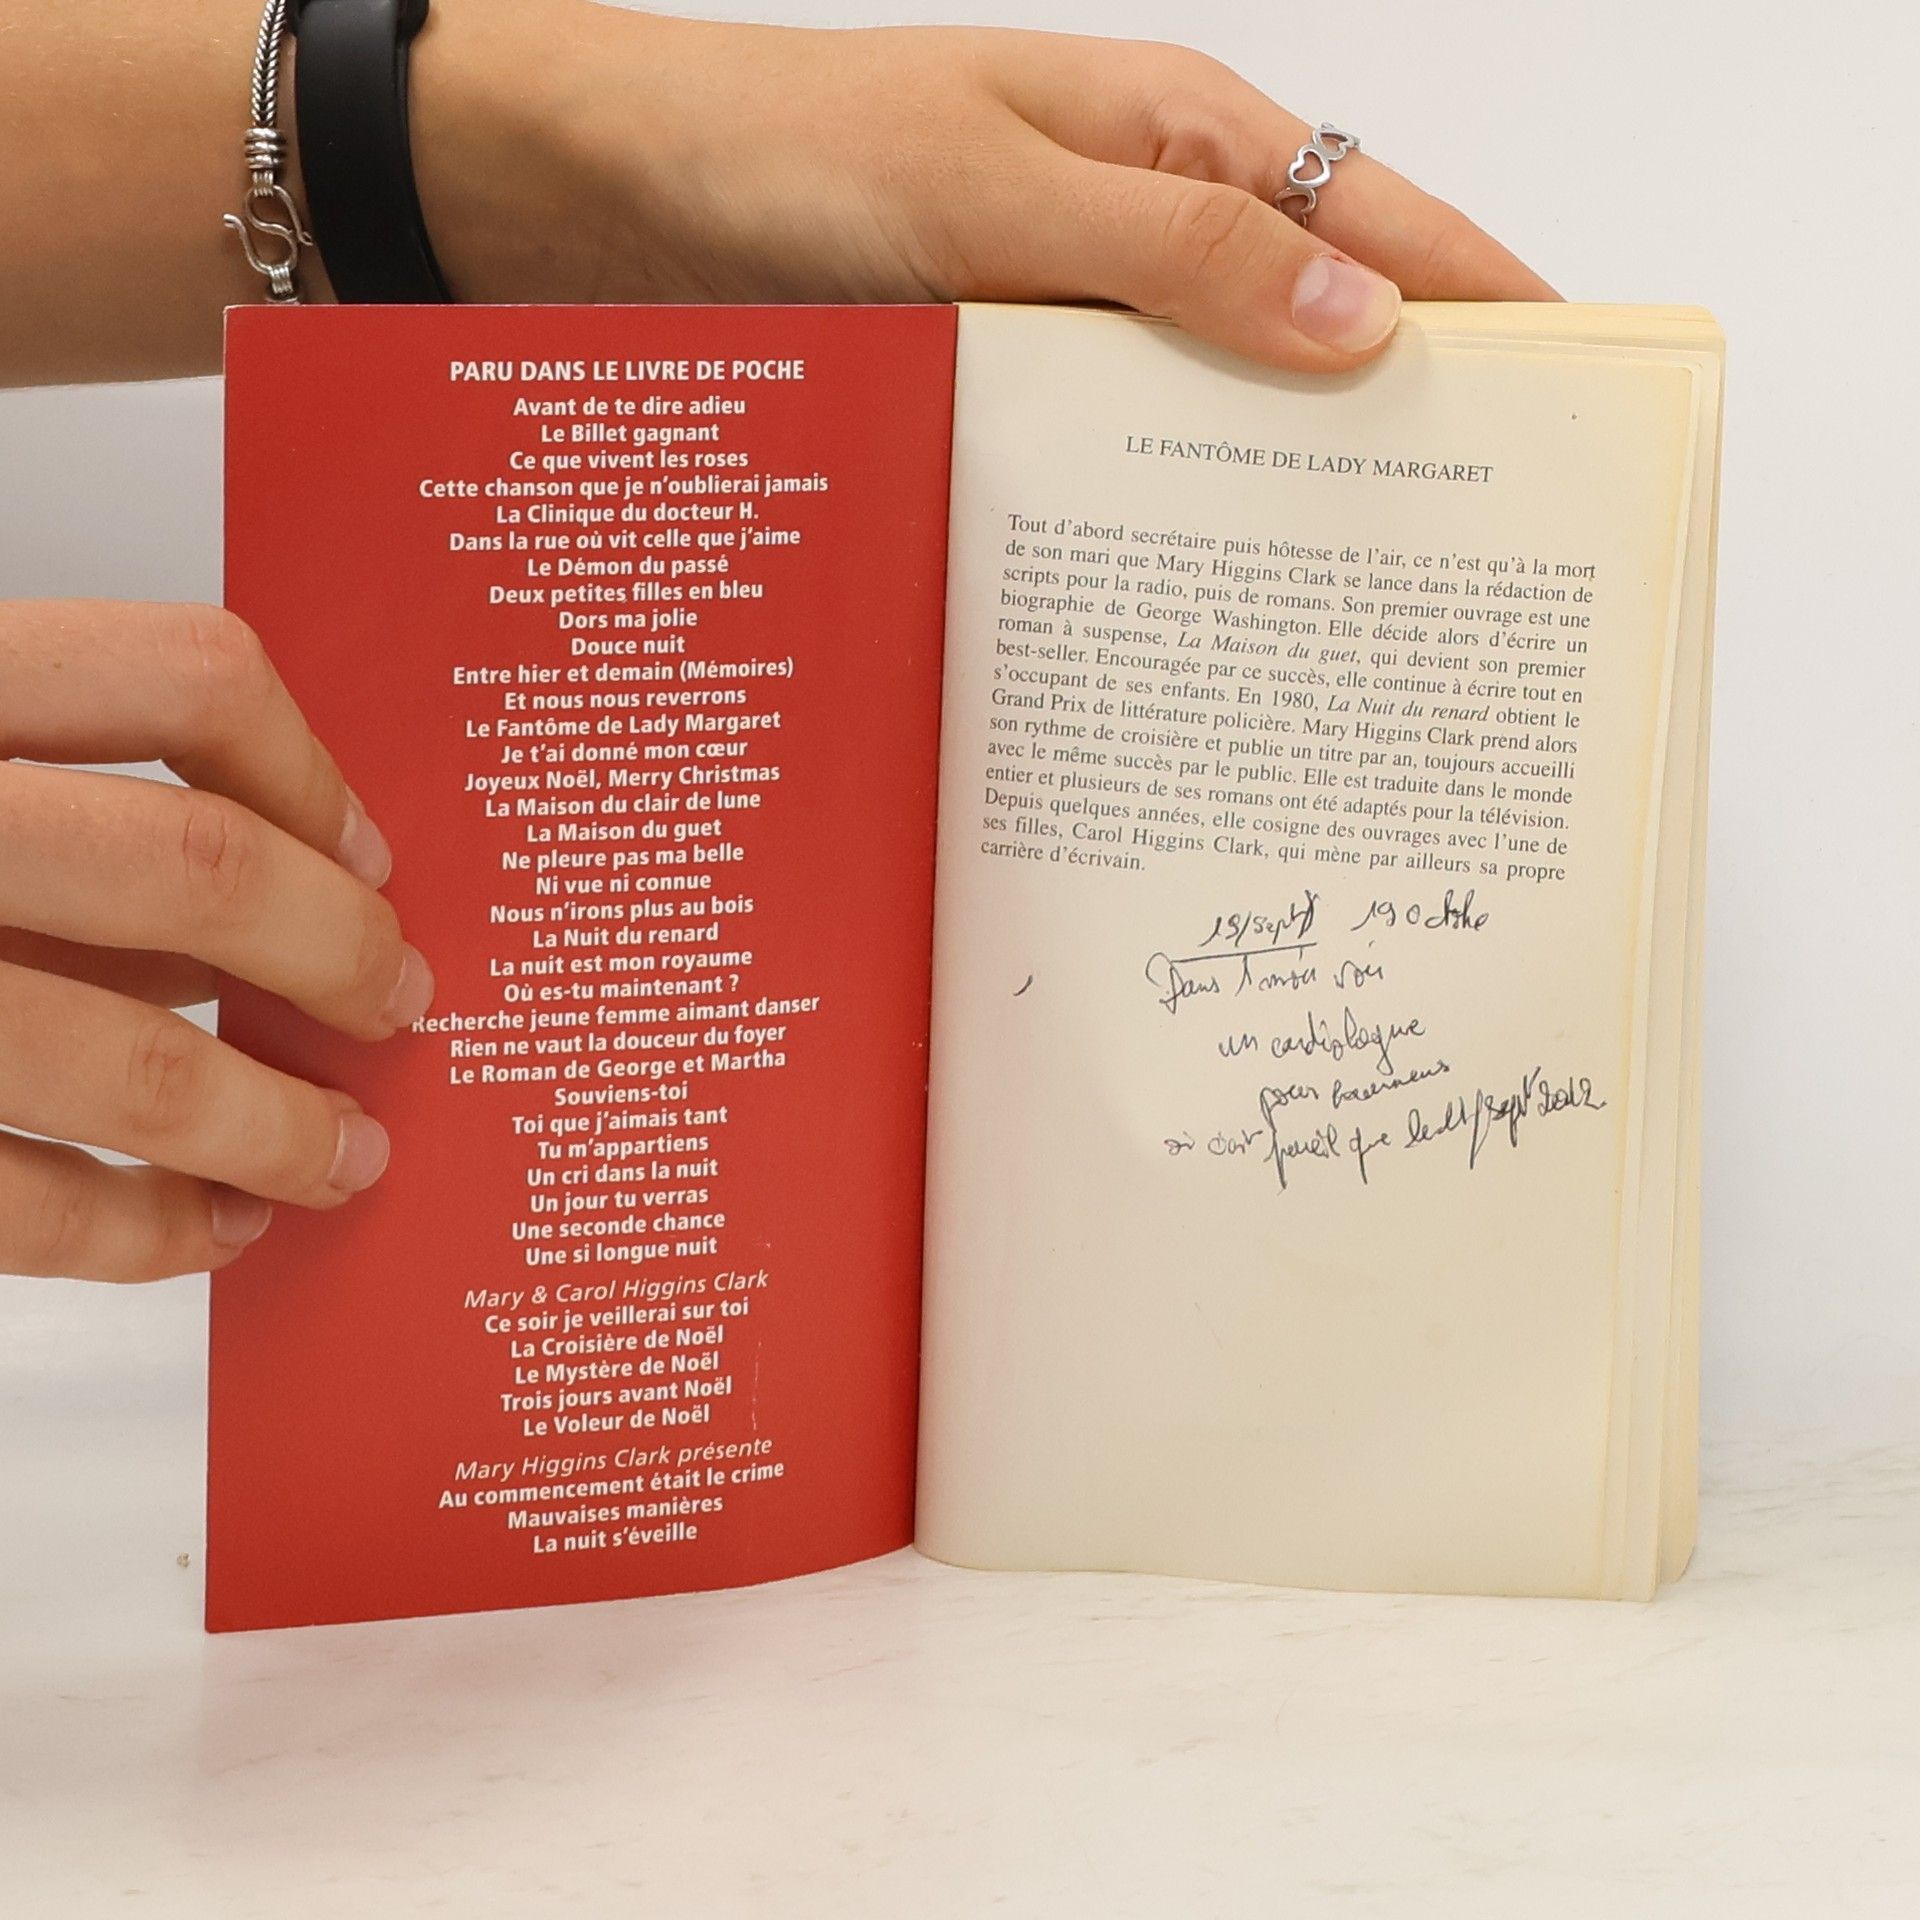 PARU DANS LE LIVRE DE POCHE
Avant de te dire adieu
Le Billet gagnant
Ce que vivent les roses
Cette chanson que je n'oublierai jamais
La Clinique du docteur H.
Dans la rue où vit celle que j'aime
Le Démon du passé
Deux petites filles en bleu
Dors ma jolie
Douce nuit
Entre hier et demain (Mémoires)
Et nous nous reverrons
Le Fantôme de Lady Margaret
Je t'ai donné mon cœur
Joyeux Noël, Merry Christmas
La Maison du clair de lune
La Maison du guet
Ne pleure pas ma belle
Ni vue ni connue
Nous n'irons plus au bois
La Nuit du renard
La nuit est mon royaume
Où es-tu maintenant ?
Recherche jeune femme aimant danser
Rien ne vaut la douceur du foyer
Le Roman de George et Martha
Souviens-toi
Toi que j'aimais tant
Tu m'appartiens
Un cri dans la nuit
Un jour tu verras
Une seconde chance
Une si longue nuit
Mary & Carol Higgins Clark
Ce soir je veillerai sur toi
La Croisière de Noël
Le Mystère de Noël
Trois jours avant Noël
Le Voleur de Noël
Mary Higgins Clark présente
Au commencement était le crime
Mauvaises manières
La nuit s'éveille
LE FANTÔME DE LADY MARGARET
Tout d'abord secrétaire puis hôtesse de l'air, ce n'est qu'à la mort
de son mari que Mary Higgins Clark se lance dans la rédaction de
scripts pour la radio, puis de romans. Son premier ouvrage est une
biographie de George Washington. Elle décide alors d'écrire un
roman à suspense, La Maison du guet, qui devient son premier
best-seller. Encouragée par ce succès, elle continue à écrire tout en
s'occupant de ses enfants. En 1980, La Nuit du renard obtient le
Grand Prix de littérature policière. Mary Higgins Clark prend alors
son rythme de croisière et publie un titre par an, toujours accueilli
avec le même succès par le public. Elle est traduite dans le monde
entier et plusieurs de ses romans ont été adaptés pour la télévision.
Depuis quelques années, elle cosigne des ouvrages avec l'une de
ses filles, Carol Higgins Clark, qui mène par ailleurs sa propre
carrière d'écrivain.
19/Sept 19 Octobre
Dans 1 mois voir
un cardiologue
pour
si c'est pareil que Sept 2012.